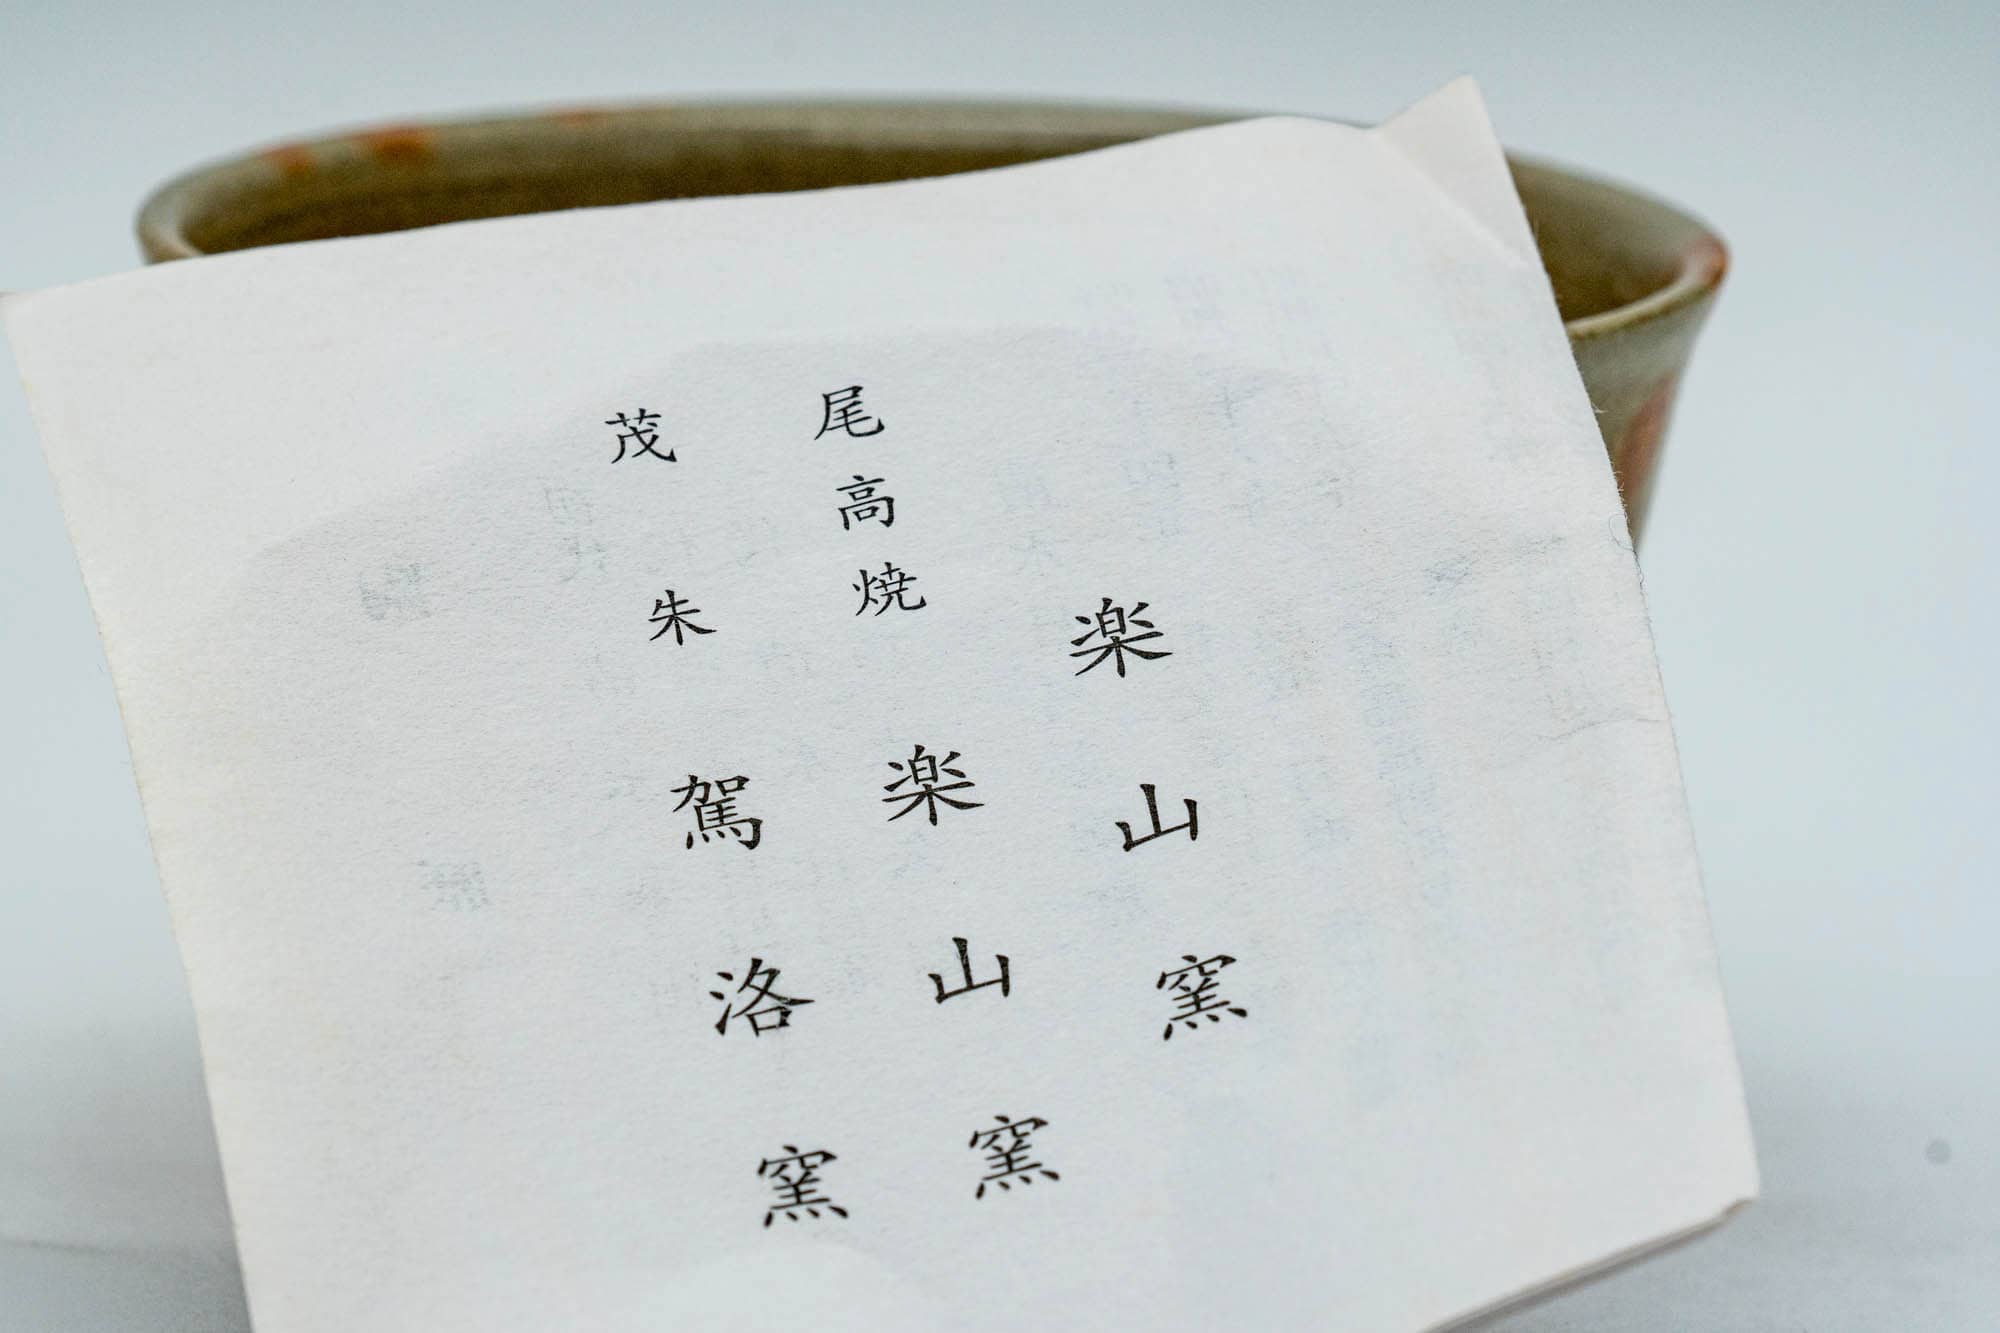 楽山窯
尾高焼 楽山窯
茂朱 駕洛窯